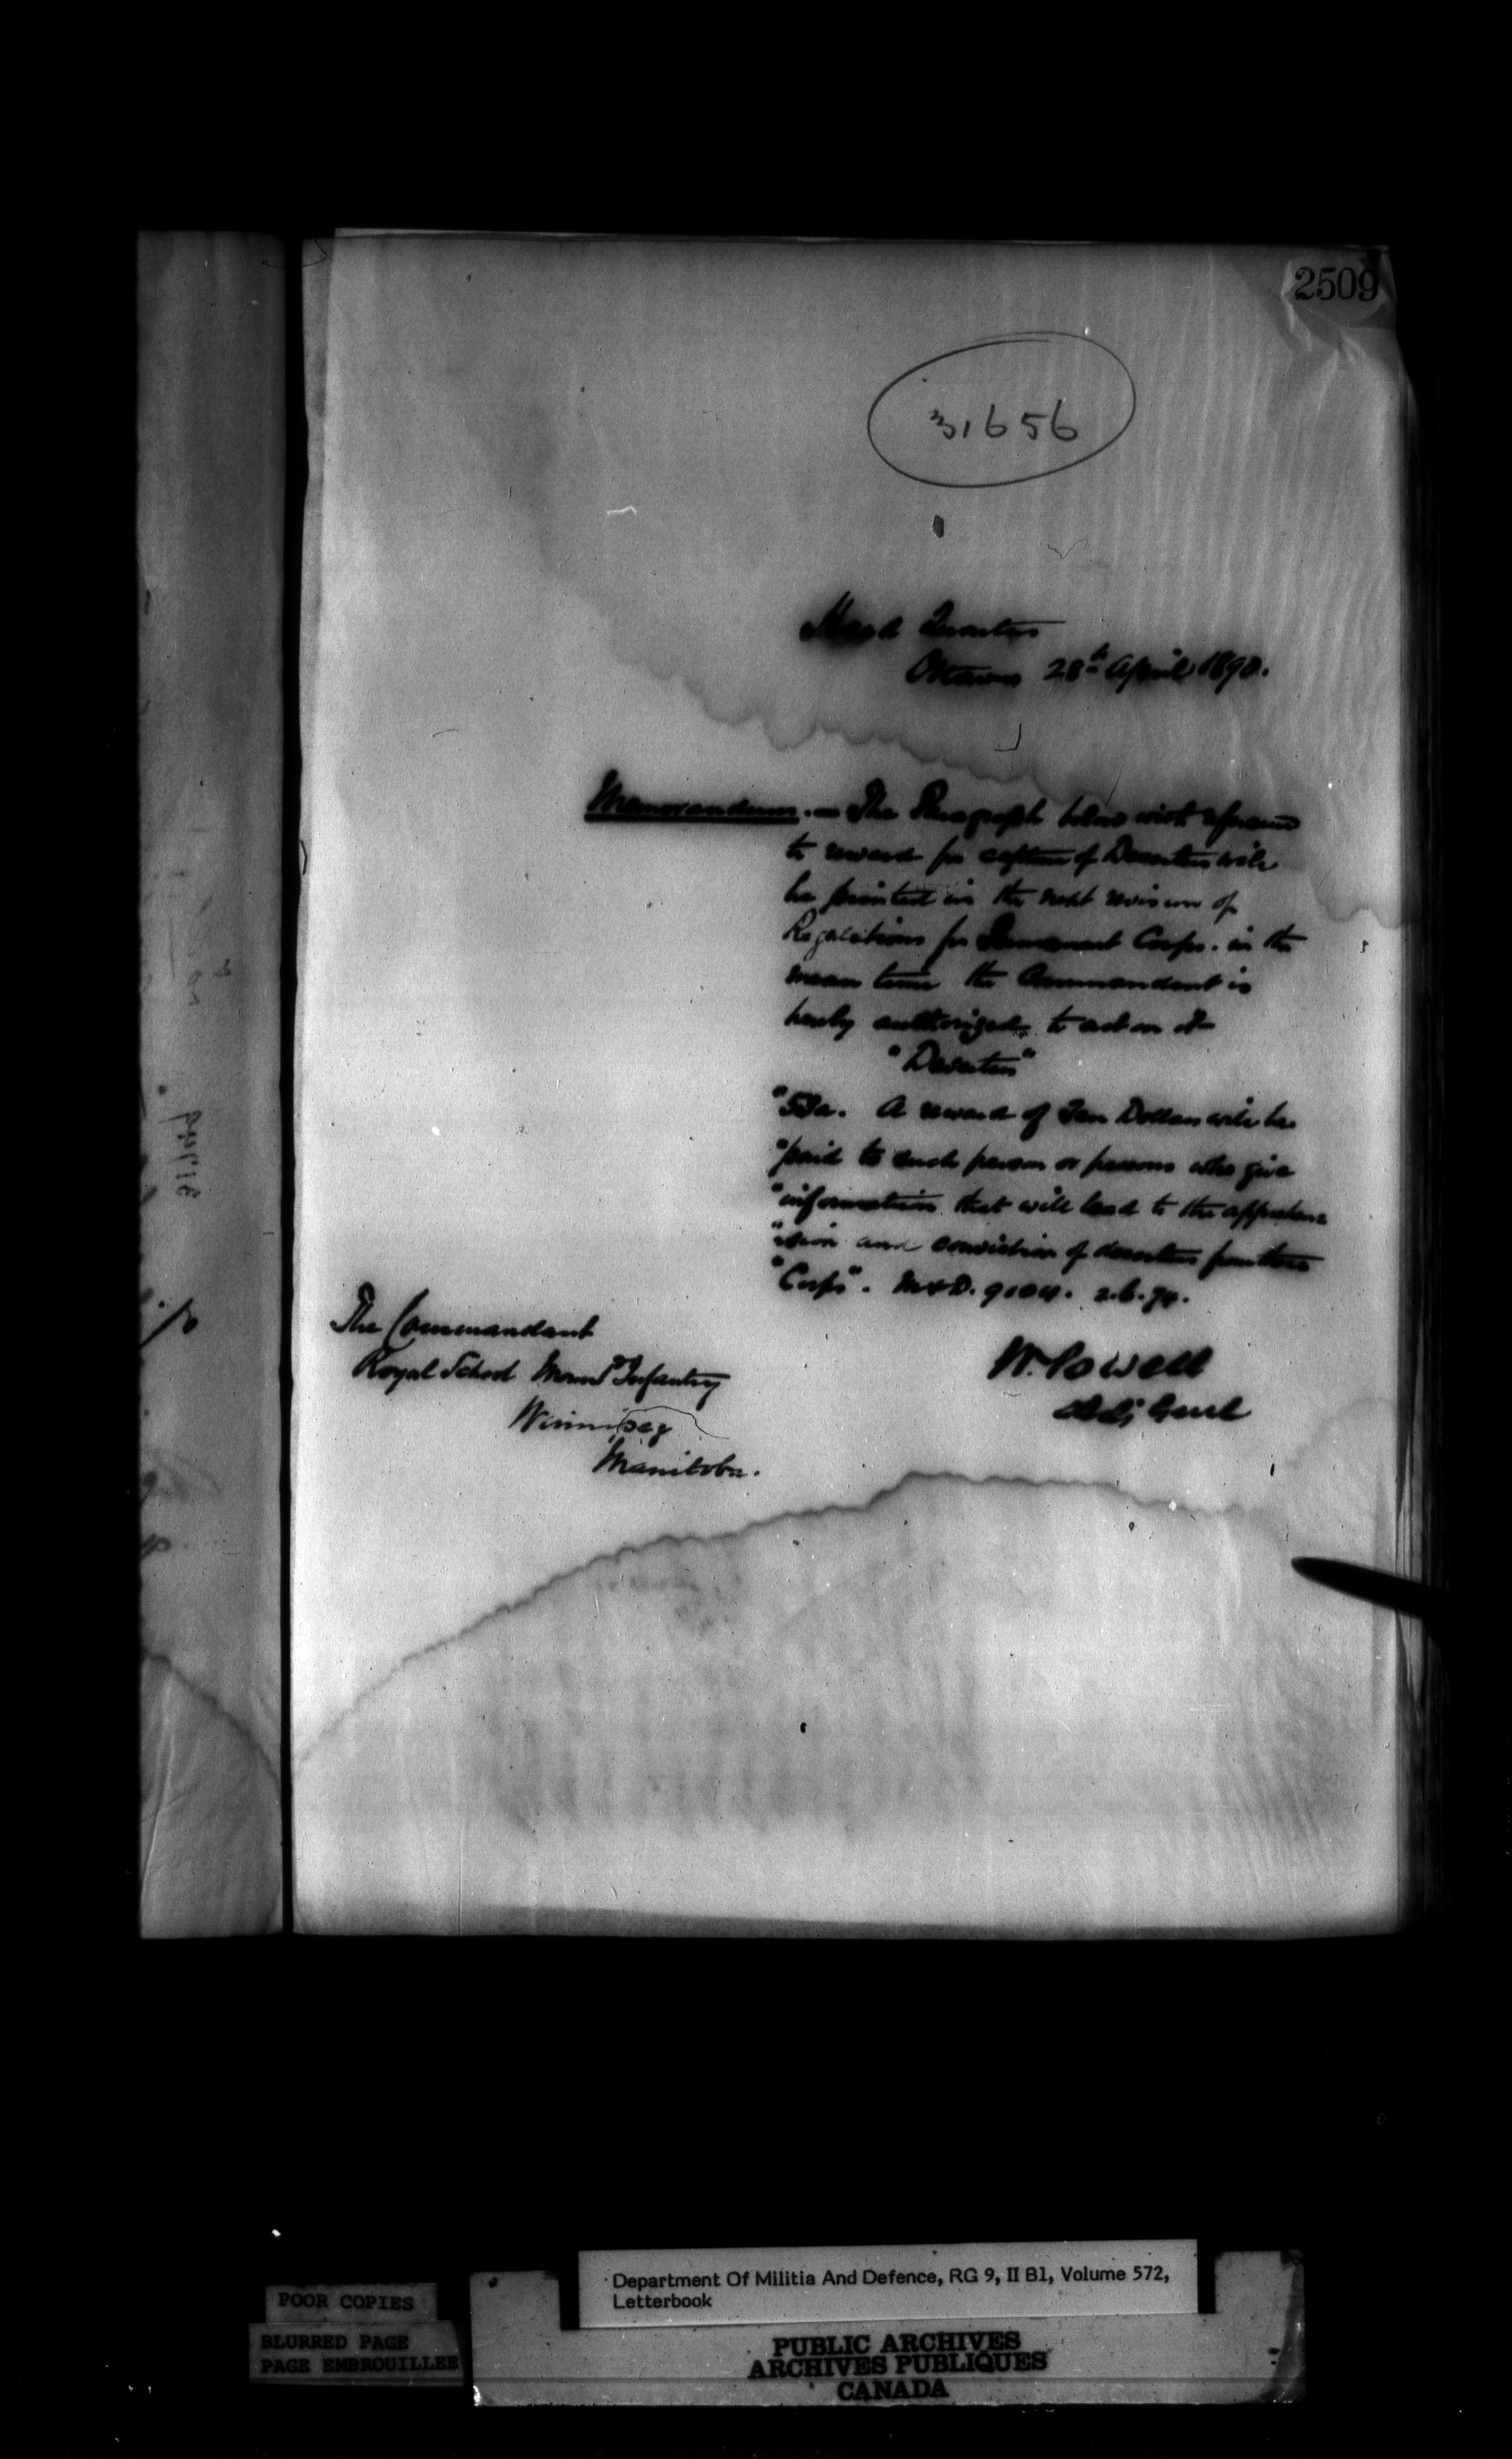 2509
31656
Head Quarters
Ottawa 28th April 1890.
Memorandum. — The Paragraph below with reference
to reward for capture of Deserters will
be printed in the next revision of
Regulations for Permanent Corps. in the
mean time the Commandant is
hereby authorized to act on it
"Deserters"
"53a. A reward of Ten Dollars will be
"paid to such person or persons who give
"information that will lead to the apprehen
"sion and conviction of deserters from the
"Corps". M&D.
The Commandant
Royal School Mount Infantry
Winnipeg
Manitoba.
W. Powell
Adj Genl
POOR COPIES
BLURRED PAGE
PAGE EMBROUILLEE
Department Of Militia And Defence, RG 9, II B1, Volume 572,
Letterbook
PUBLIC ARCHIVES
ARCHIVES PUBLIQUES
CANADA